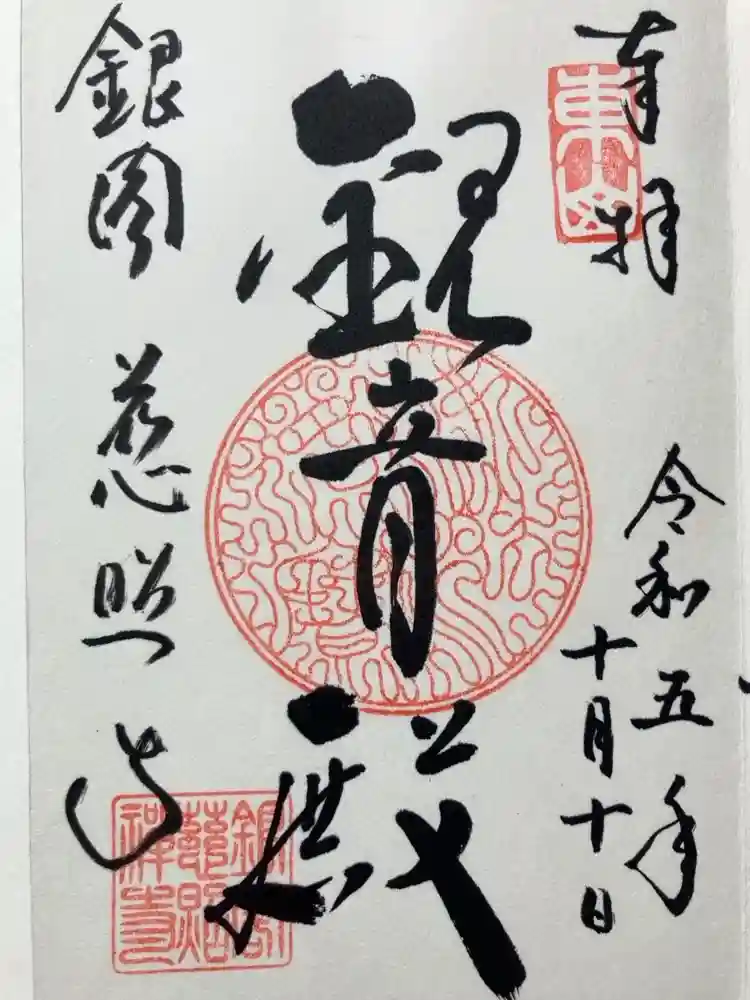 奉拝
令和五年
十月十日
観音殿
銀閣 慈照寺
東山
銀閣
慈照
禅寺